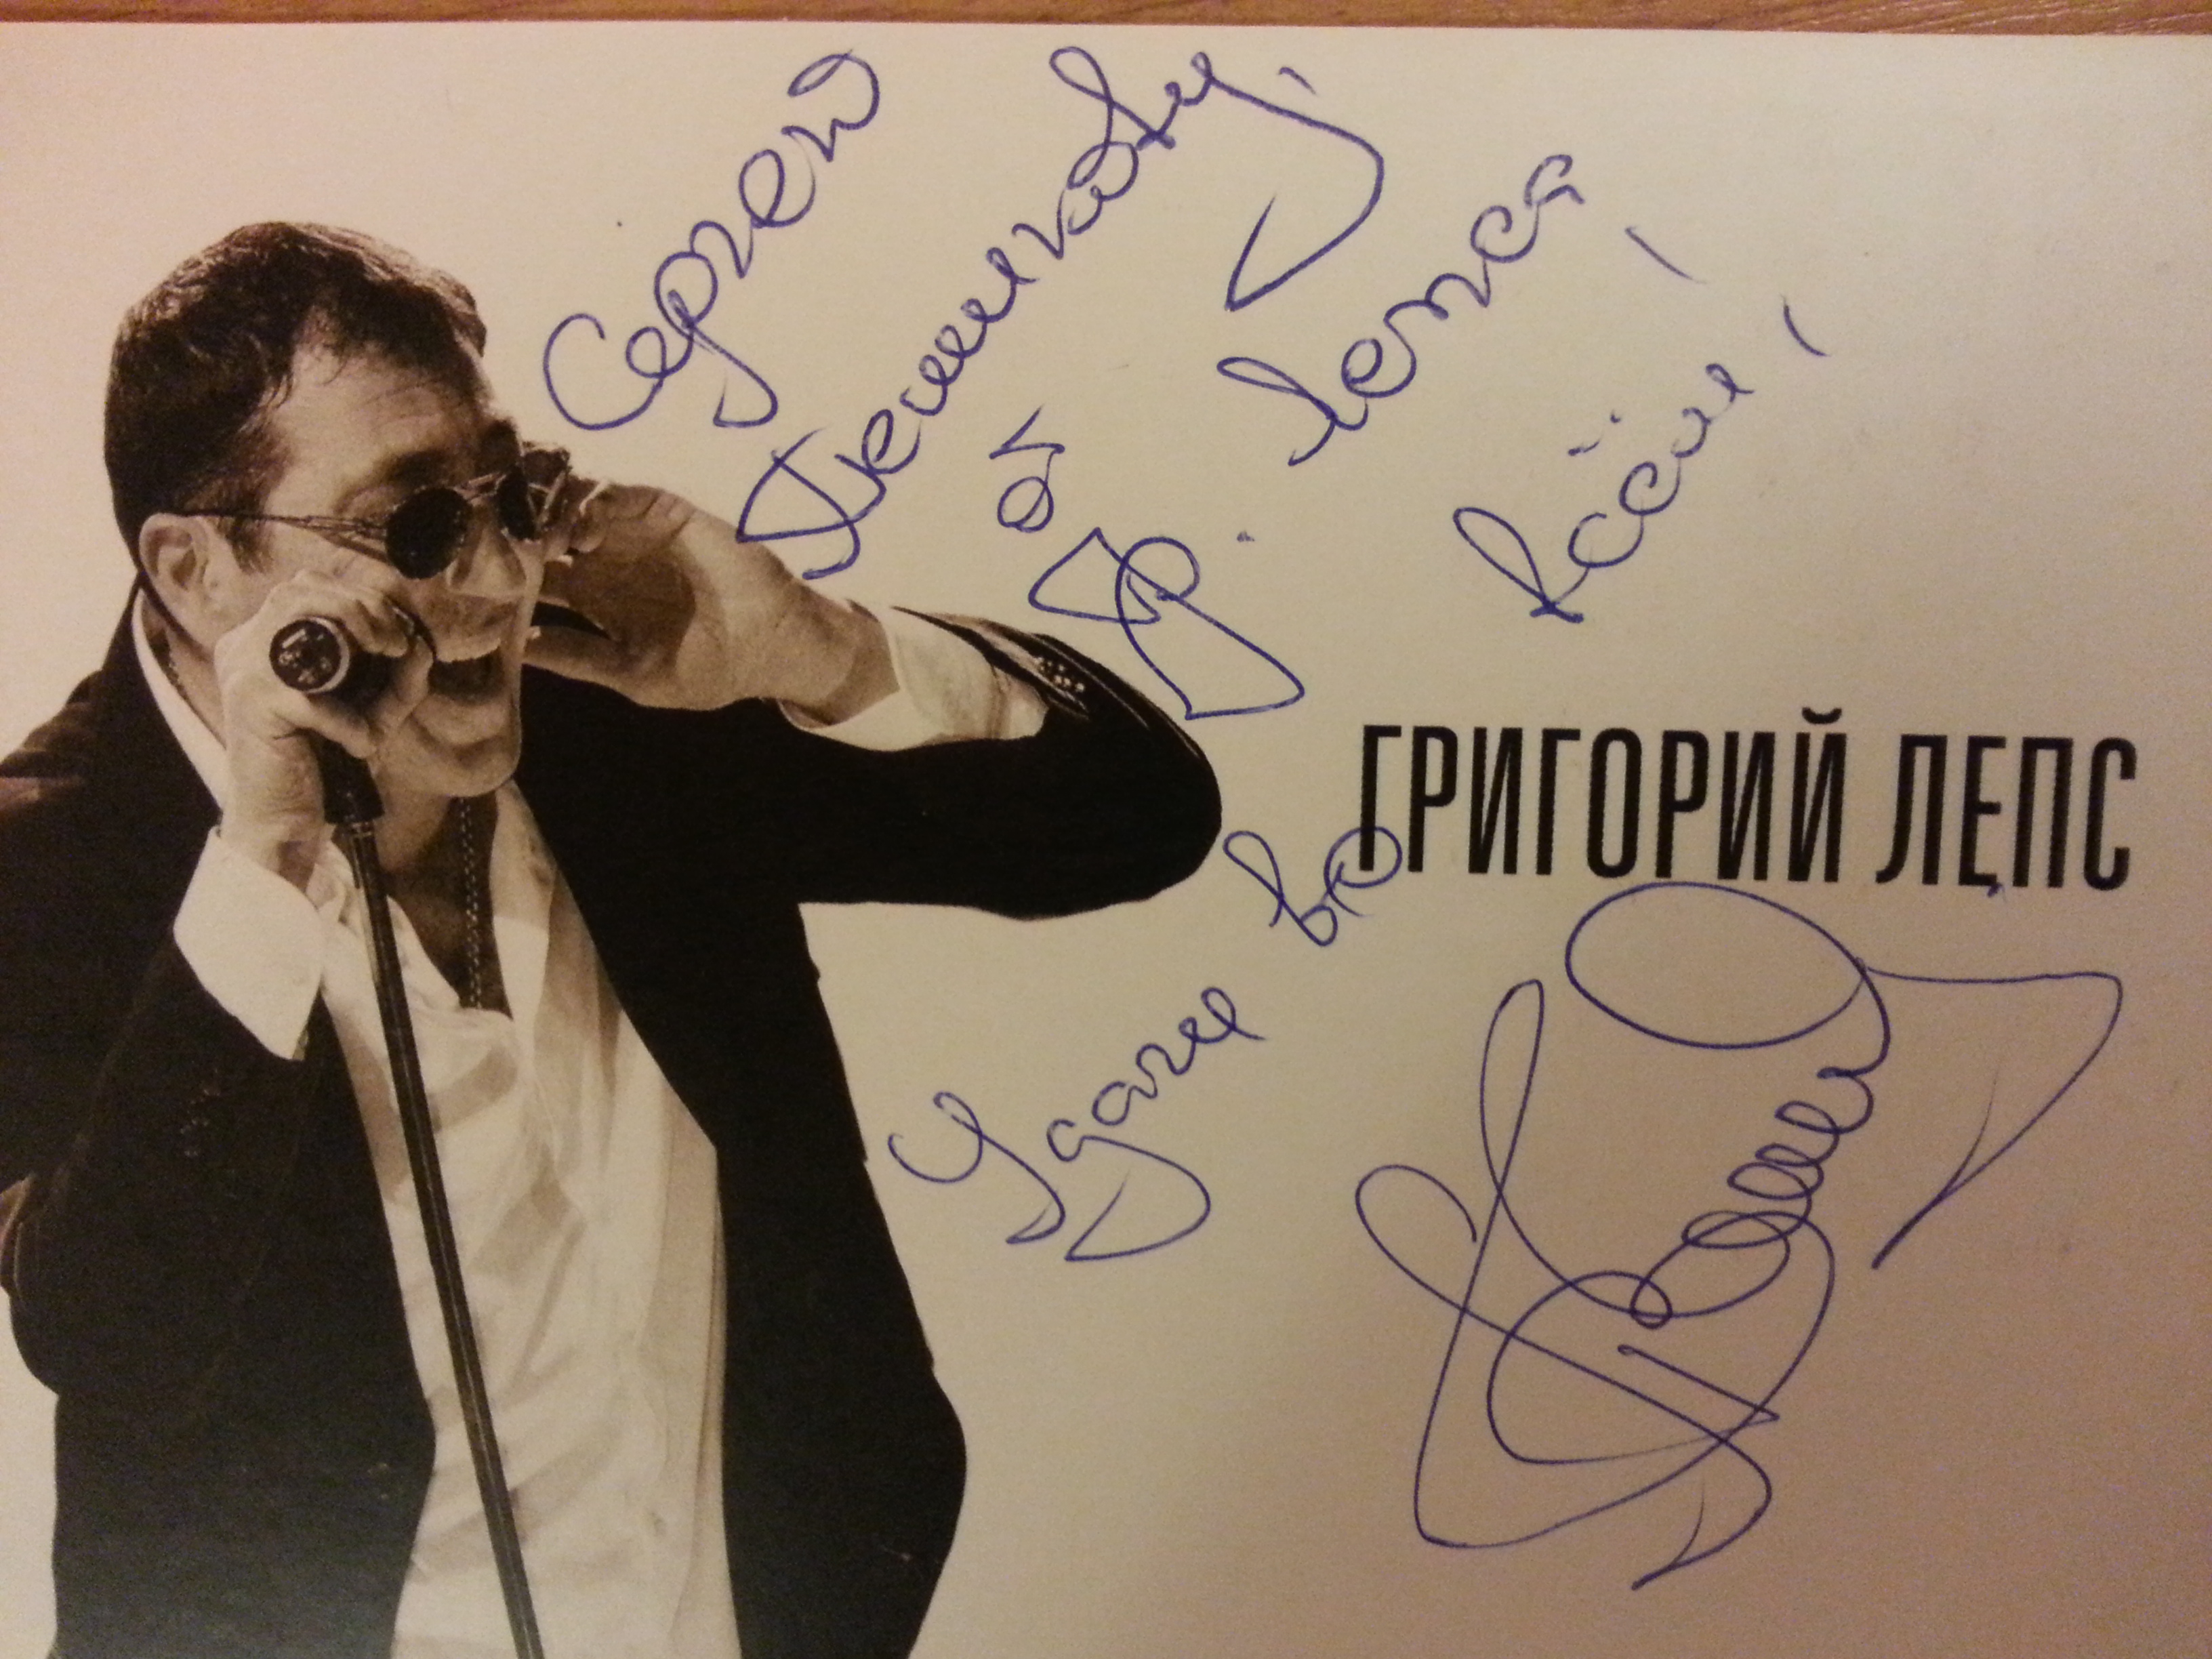 Сергею
от
Гр. Лепса
Удачи во всём!
ГРИГОРИЙ ЛЕПС